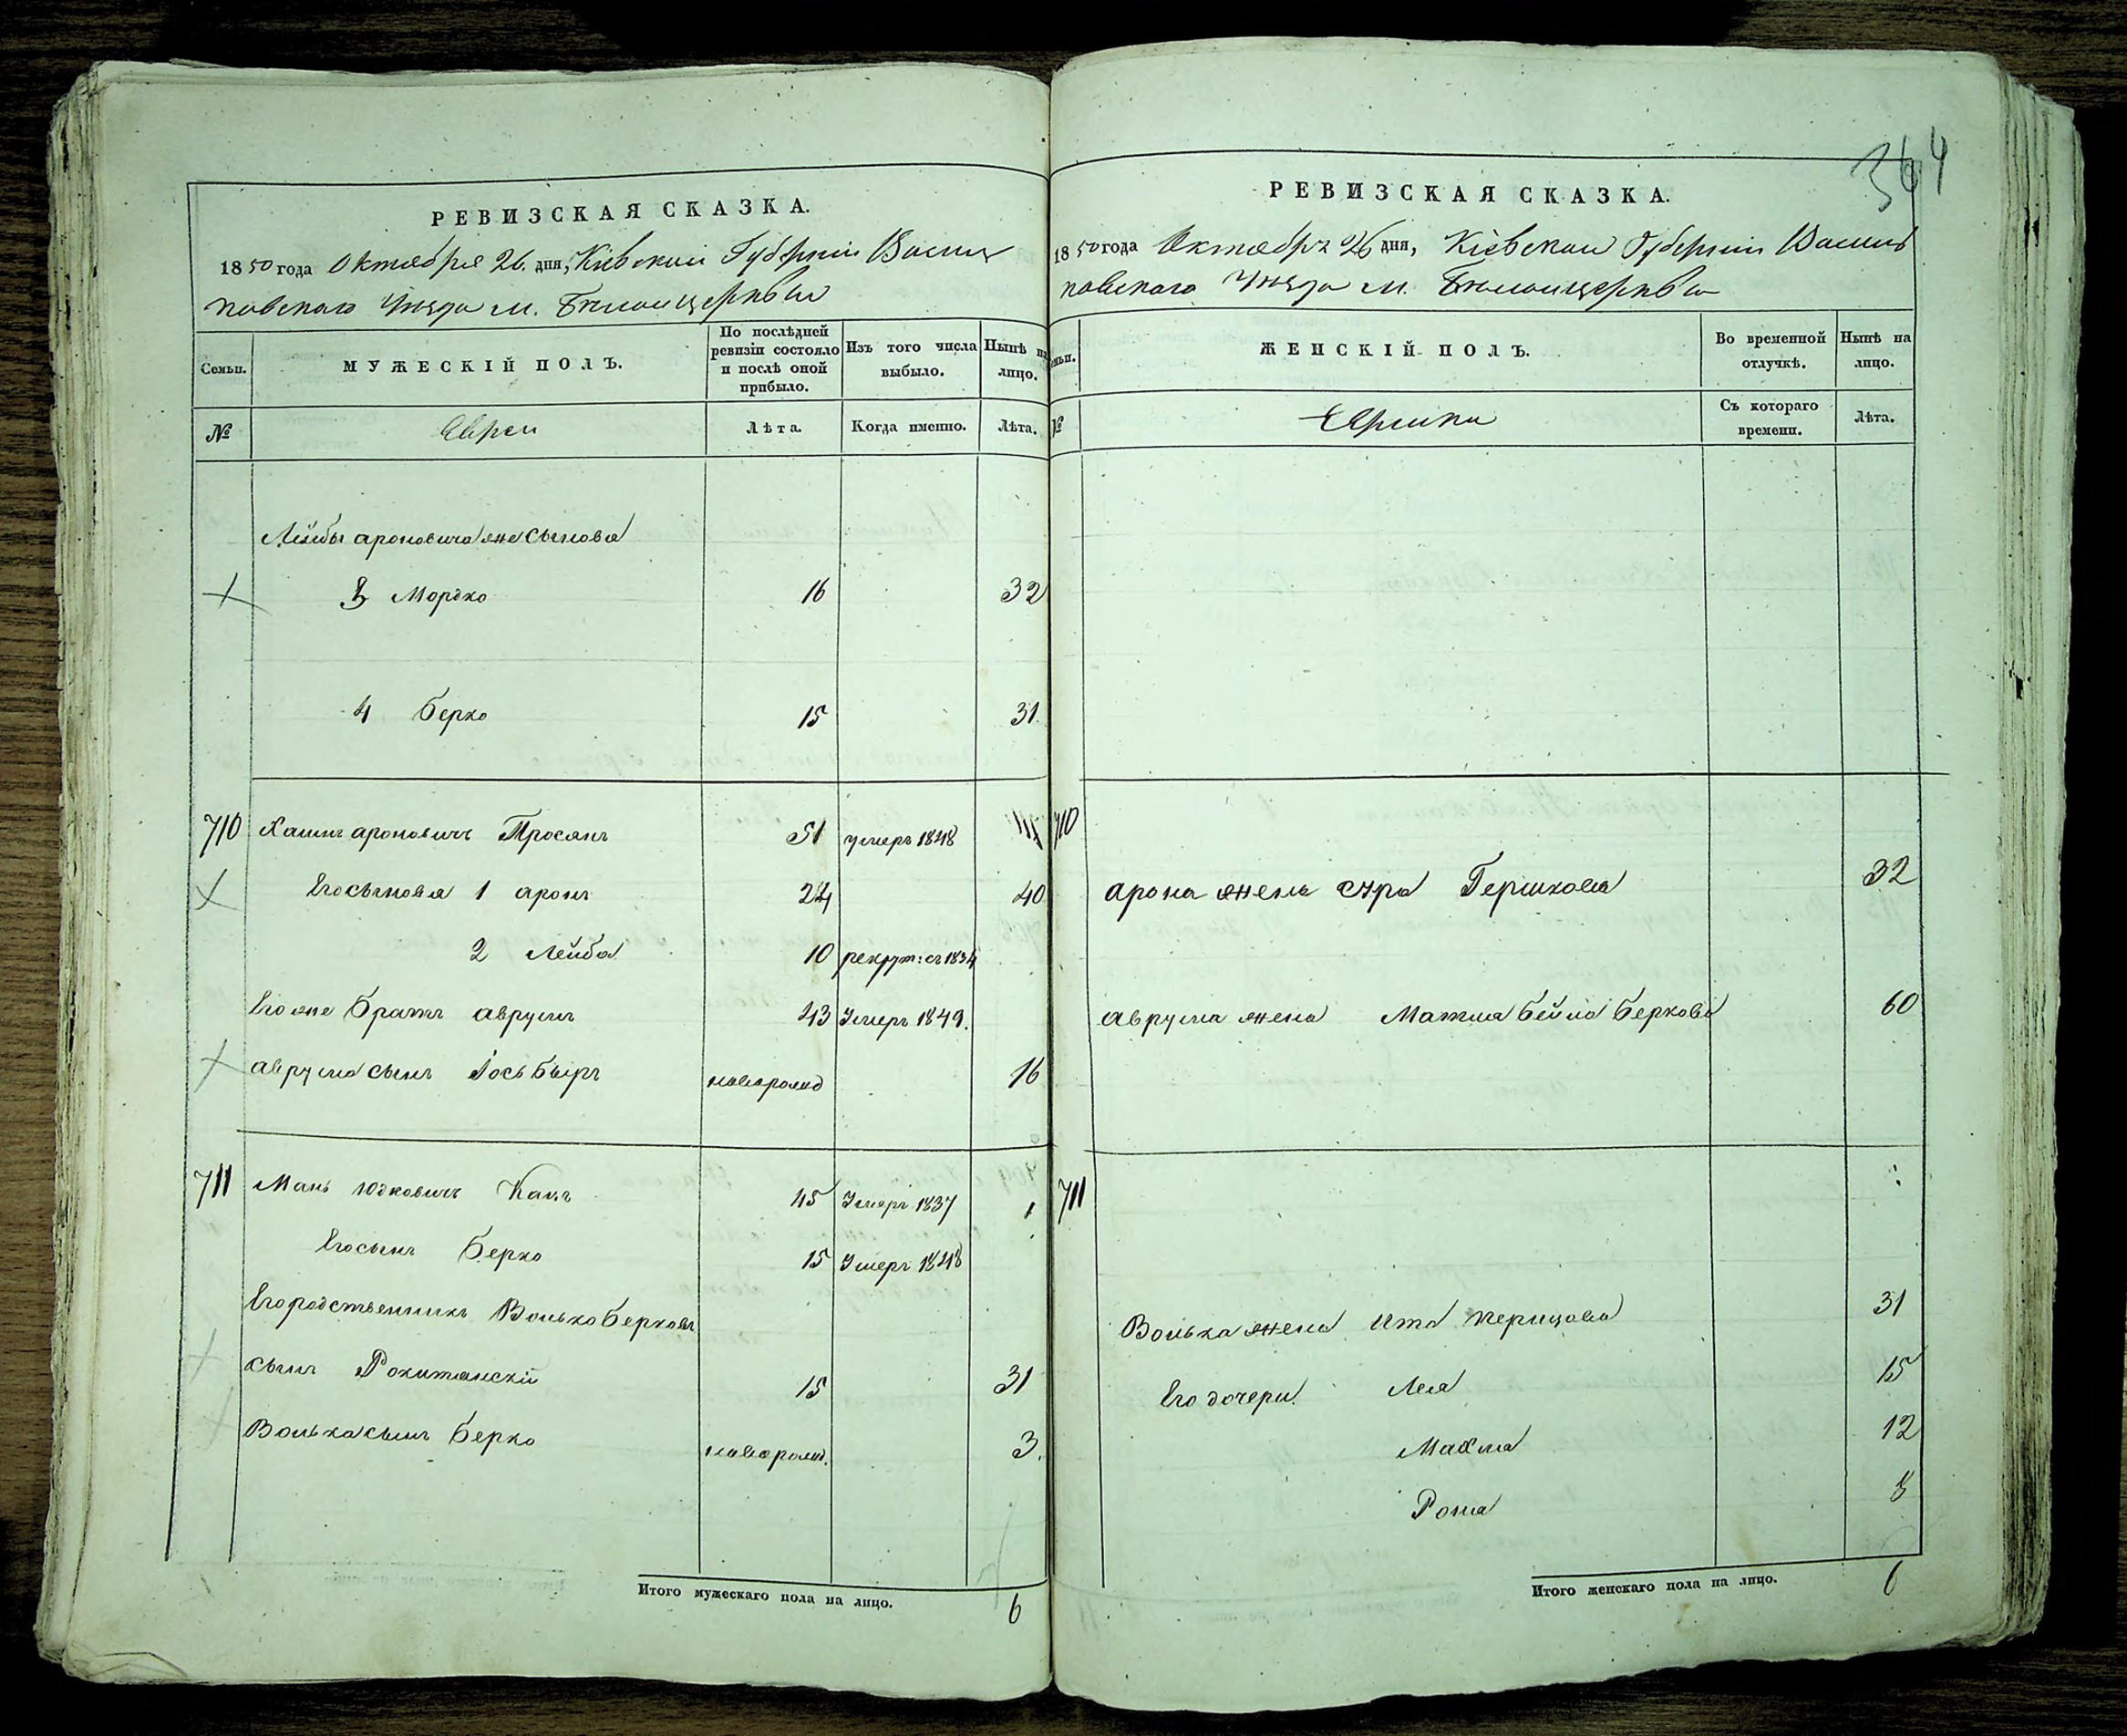 364
РЕВИЗСКАЯ СКАЗКА.
1850 года Октября 26. дня, Кіевской Губерніи Василь
ковскаго Уѣзда м. Бѣлойцеркви
Семьи.
МУЖЕСКІЙ ПОЛЪ.
По послѣдней ревизіи состояло и послѣ оной прибыло.
Изъ того числа выбыло.
Нынѣ на лицо.
№
Евреи
Лѣта.
Когда именно.
Лѣта.
Лейбы Ароновича же сыновья
3 Мордко 16 32
4 Берко 15 31.
710 Хаимъ Ароновичъ Тросянъ 51 умеръ 1848
Его сыновья 1 Аронъ 24 40
2 Лейба 10 рекрут: съ 1834
Его же братъ Аврумъ 43 Умеръ 1849.
Аврума сынъ Іось Быръ новорожд 16
711 Мань Юдковичъ Кацъ 45 Умеръ 1837
Его сынъ Берко 15 Умеръ 1848
Его родственникъ Волько Берковъ
сынъ Рокитянскій 15 31
Волька сынъ Берко новорожд. 3.
Итого мужескаго пола на лицо. 6
РЕВИЗСКАЯ СКАЗКА.
1850 года Октября 26 дня, Кіевской Губерніи Василь
ковскаго Уѣзда м. Бѣлойцеркви
Семьи.
ЖЕНСКІЙ ПОЛЪ.
Во временной отлучкѣ.
Нынѣ на лицо.
№
Еврейки
Съ котораго времени.
Лѣта.
710
Арона жена Сура Гершкова 32
Аврума жена Матля Бейла Беркова 60
711
Волька жена Ита Перицова 31
Его дочери Лея 15
Махля 12
Роза 8
Итого женскаго пола на лицо. 6